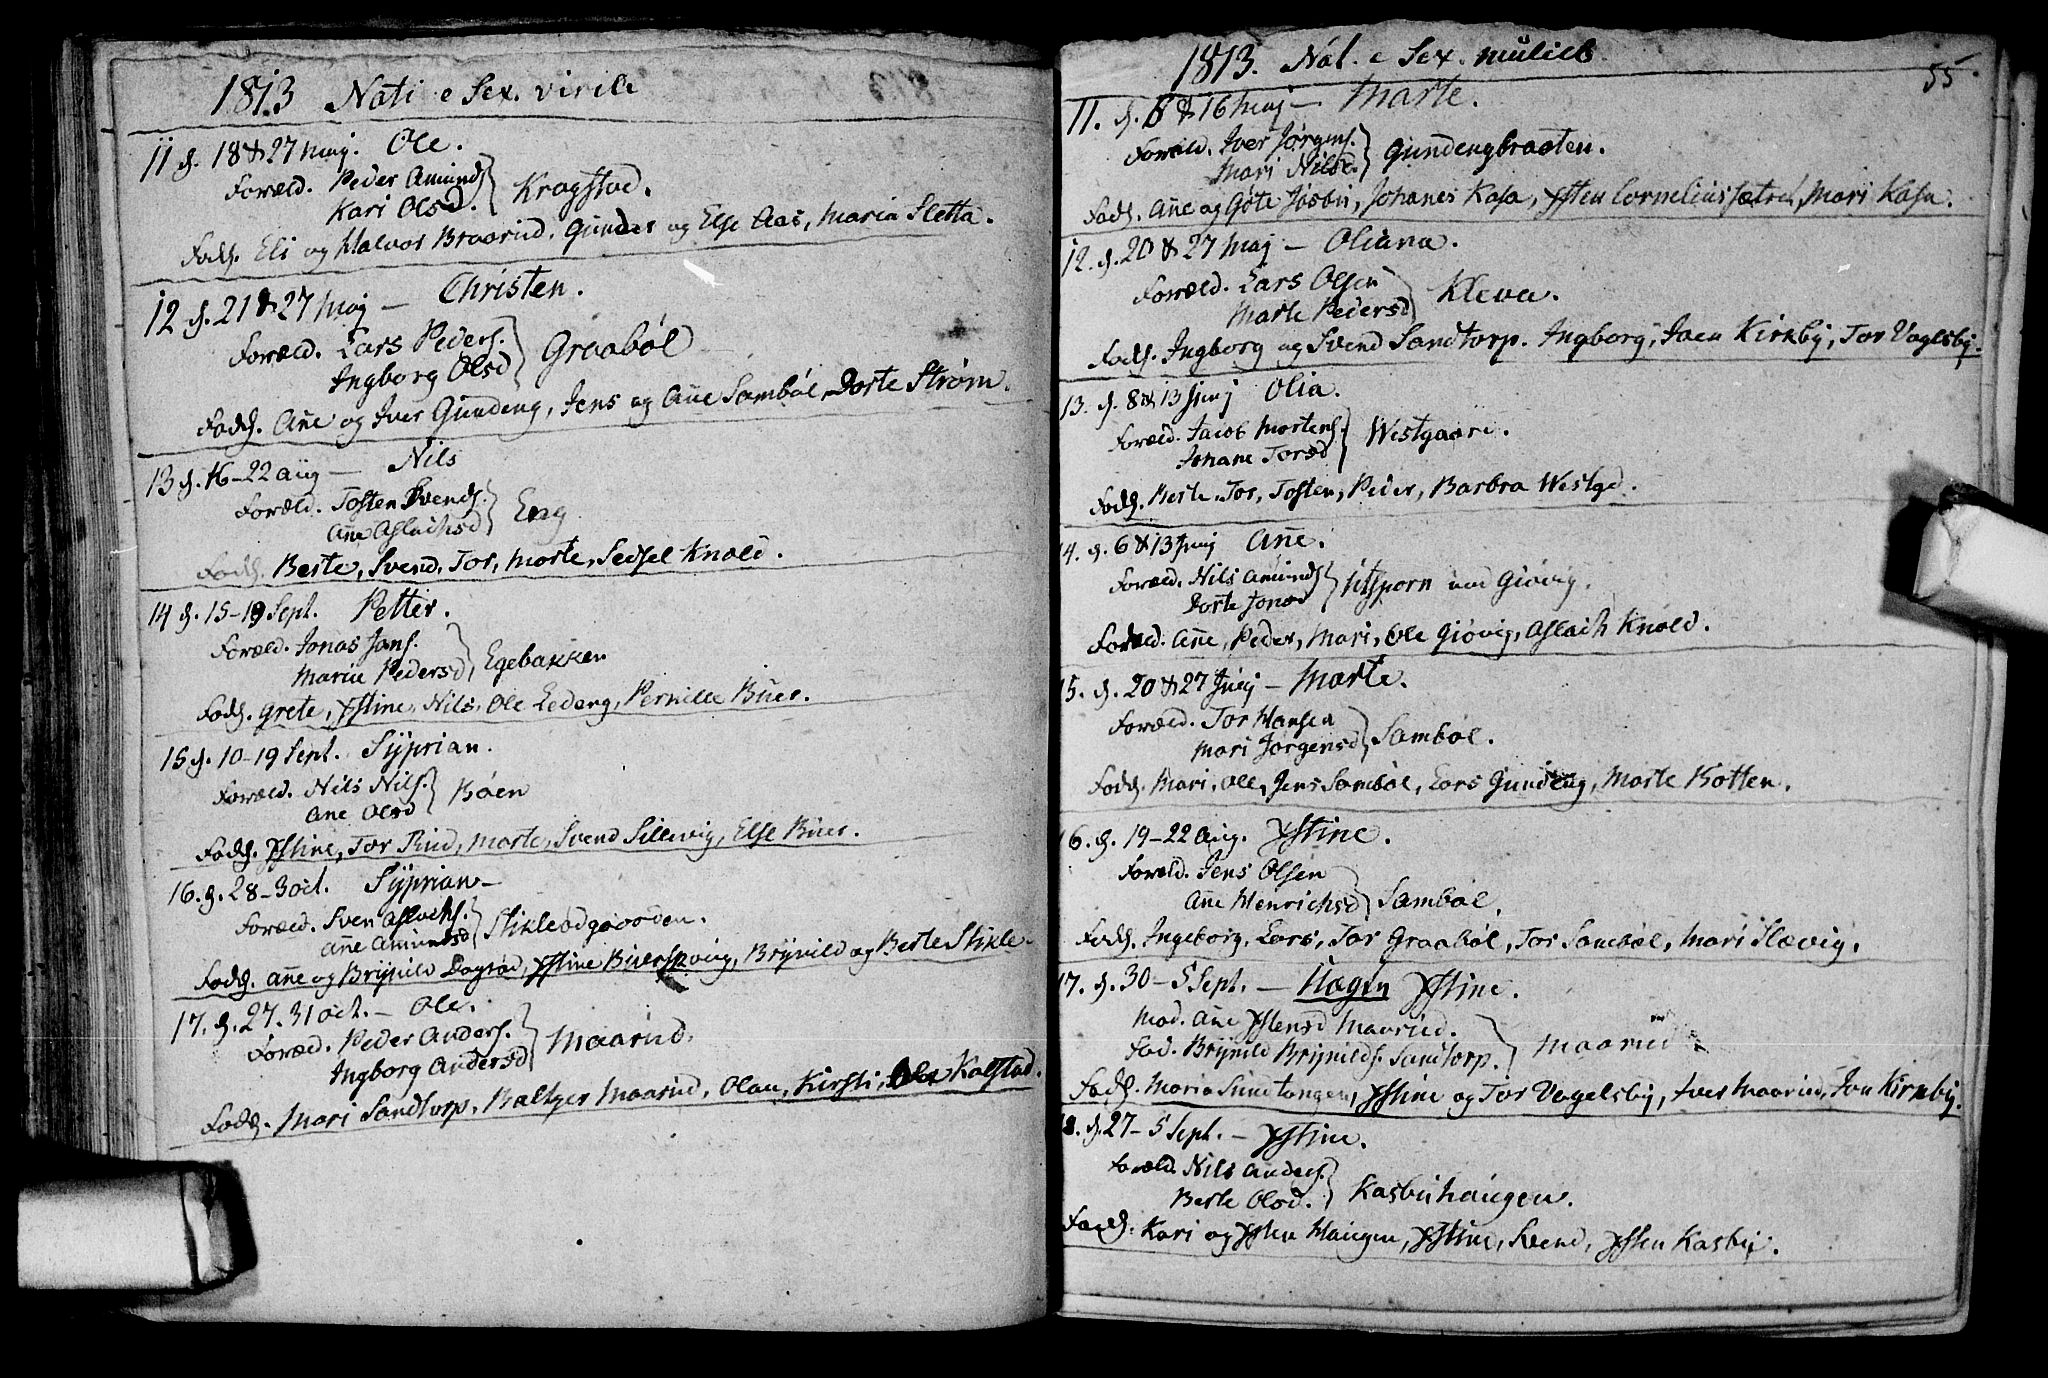 1813 Nati e Sex. virili
11 d. 18 & 27 Maj. Ole.
Foræld. Peder Amunds.
Kari Olsd. } Kragstad.
Fadd. Eli og Halvor Braarud, Gunder og Else Aas, Maria Sletta.
12 d. 21 & 27 Maj — Christen.
Foræld. Lars Peders.
Ingborg Olsd } Graabøl
Fadd. Añe og Iver Gundeng, Jens og Añe Sambøl, Dorte Strøm.
13 d. 16–22 Aug — Nils
Foræld. Tosten Svends.
Añe Aslachsd } Eng
Fadd. Berte, Svend, Tor, Morte, Sedsel Knold.
14 d. 15–19 Sept. Petter.
Foræld. Jonas Jans.
Marie Pedersd } Egebakken
Fadd. Grete, Xstine, Nils, Ole Ledeng, Pernille Buer.
15 d. 10–19 Sept. Syprian.
Foræld. Nils Nils.
Ane Olsd } Bøen
Fadd. Xstine, Tor Rud, Morte, Svend Sillevig, Else Buer.
16. d. 28–3 Oct. Syprian —
Foræld. Sven Aslachs.
Añe Amundsd } Stikleødgaarden.
Fadd. Añe og Brynild Dagsød, Xstine Buerskovig, Brynild og Berte Stikle.
17. d. 27. 31 Oct. — Ole.
Foræld. Peder Anders.
Ingborg Andersd } Maarud.
Fadd. Mari Sandtorp, Baltzer Maarud, Olau, Kirsti, Ole Kolstad.
1813. Nat. e Sex. mulieb.
55
11. d. 8 & 16 Maj — Marte.
Foræld. Iver Jørgens.
Mari Nilsd. } Gundengbraaten.
Fadd. Añe og Gøte Josbu, Johanes Kasa, Xsten Cornelius sætred, Mari Kasa.
12. d. 20 & 27 Maj — Oliana.
Foræld. Lars Olsen
Marte Pedersd } Kleva.
Fadd. Ingborg og Svend Sandtorp. Ingborg, Joen Kirkby, Tor Vaglsby.
13. d. 8 & 13 Junj Olia.
Foræld. Jacob Mortens.
Johane Torsd } Westgaard.
Fadd. Berte, Tor, Tosten, Peder, Barbra Westgd.
14. d. 6 & 13 Junj Añe.
Foræld. Nils Amunds.
Dorte Jonsd } Utsporn ved Giøvig.
Foræld. Añe, Peder, Mari, Ole Giøvig, Aslach Knold.
15. d. 20 & 27 Junj — Marte.
Foræld. Tor Hansen
Mari Jørgensd } Sambøl.
Fadd. Mari, Ole, Jens Sambøl, Lars Gundeng, Marte Botten.
16. d. 19–22 Aug. Xstine.
Foræld. Jens Olsen
Añe Henrichsd } Sambøl.
Fadd. Ingeborg, Lars, Tor Graabøl, Tor Sambøl, Mari Slævig.
17. d. 30–5 Sept. — Uægte Xstine.
Mod. Añe Xstensd Maarud.
Fad. Brynild Brynilds. Sandtorp. } Maarud
Fadd. Maria Sundtangen, Xstine og Tor Vaglsby, Iver Maarud, Jon Kirkby.
18. d. 27–5 Sept. — Xstine.
Foræld. Nils Anders.
Berte Olsd. } Kasbuhaugen.
Fadd. Kari og Xsten Haugen, Xstine, Svend, Xsten Kasby.